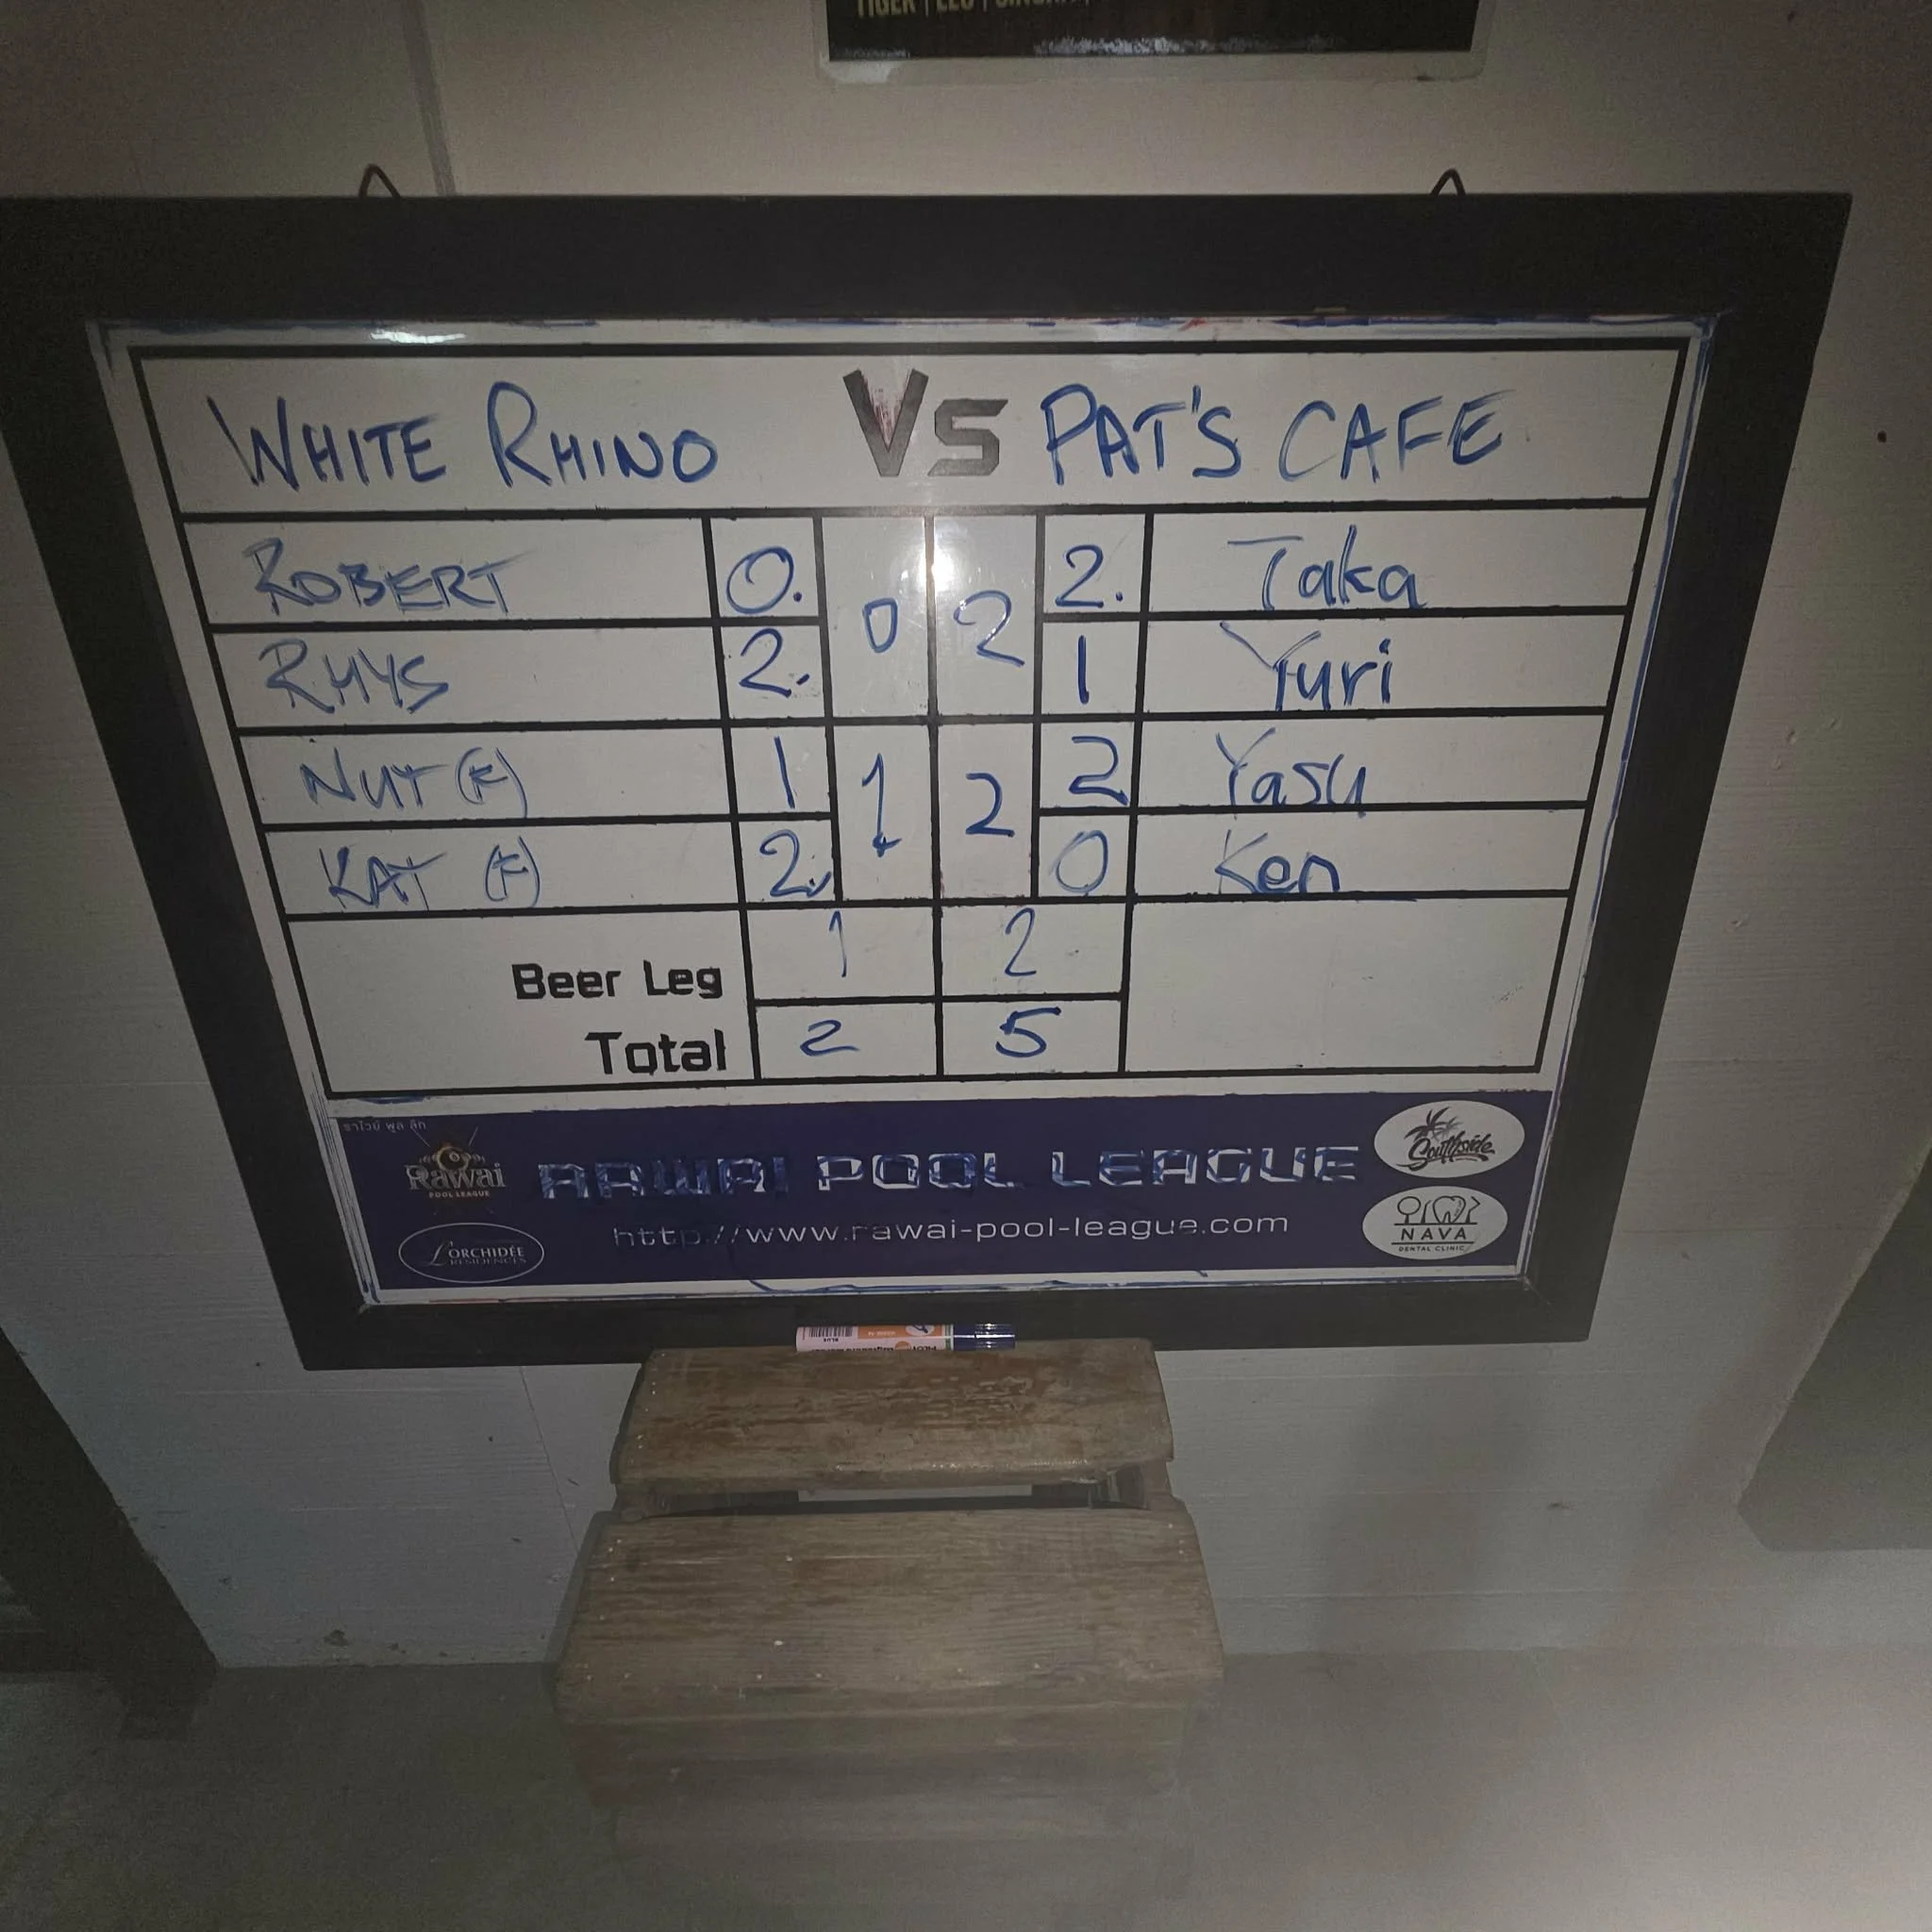 TIGER | LEO |
WHITE RHINO VS PAT'S CAFE
ROBERT 0. 0 2 2. Taka
RHYS 2. 1 Yuri
NUT (F) 1 1 2 2 Yasu
KAT (F) 2. 0 Ken
Beer Leg 1 2
Total 2 5
ราไวย์ พูล ลีก
Rawai
POOL LEAGUE
RAWAI POOL LEAGUE
http://www.rawai-pool-league.com
L'ORCHIDÉE
RESIDENCES
Southside
NAVA
DENTAL CLINIC